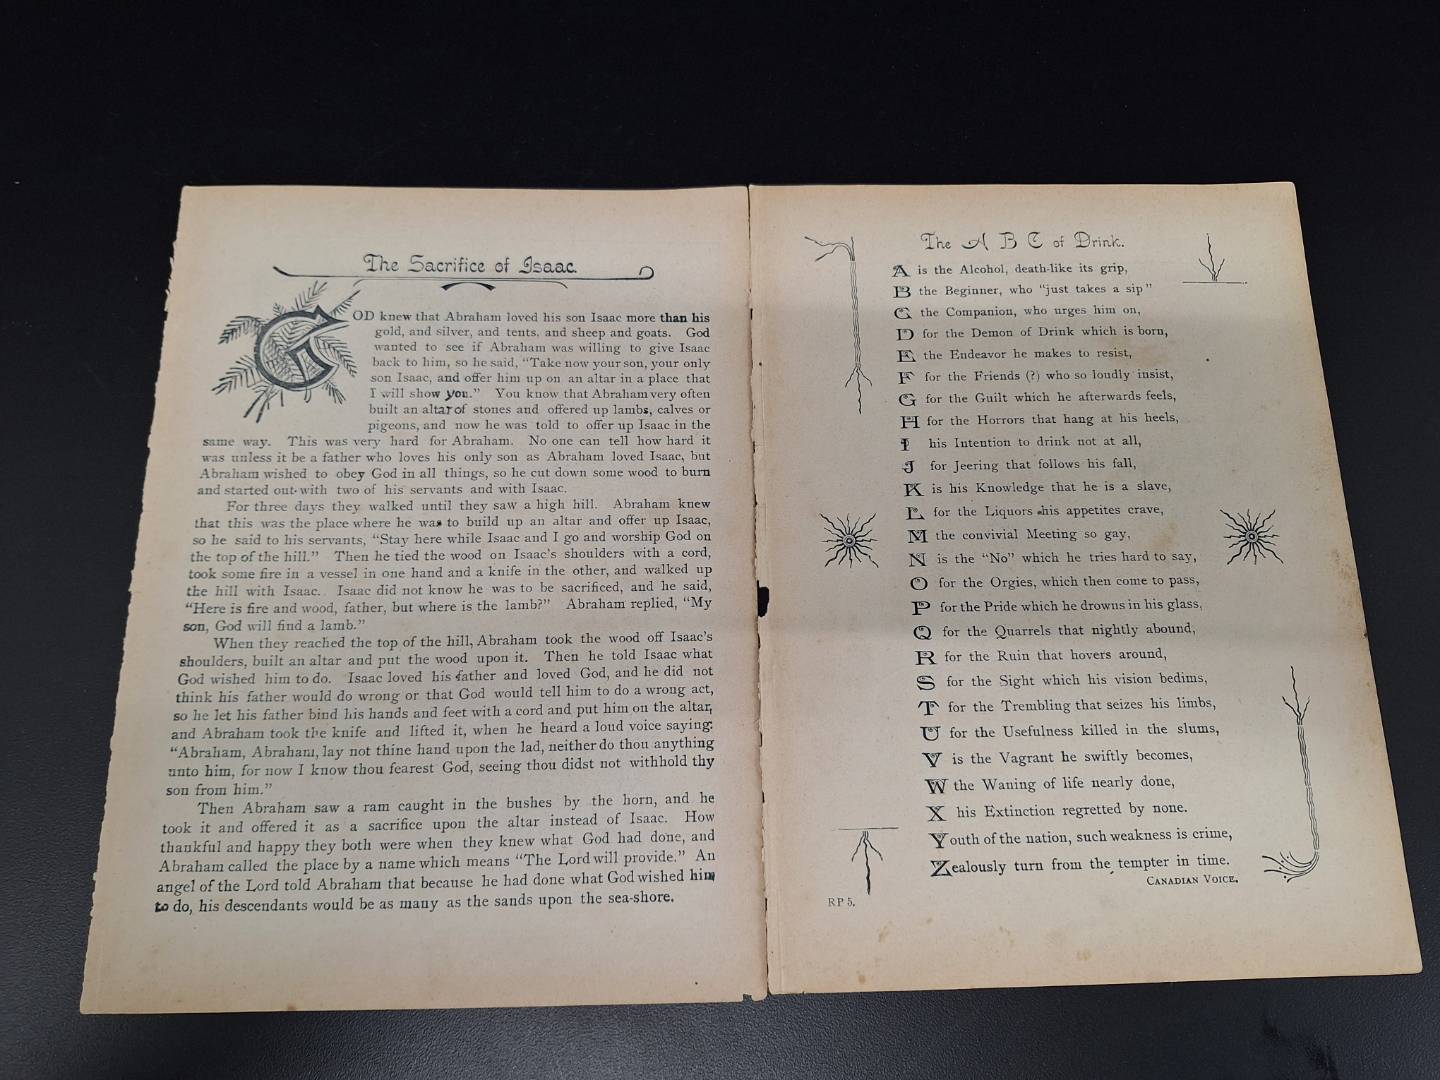 The Sacrifice of Isaac.
GOD knew that Abraham loved his son Isaac more than his
gold, and silver, and tents, and sheep and goats. God
wanted to see if Abraham was willing to give Isaac
back to him, so he said, "Take now your son, your only
son Isaac, and offer him up on an altar in a place that
I will show you." You know that Abraham very often
built an altar of stones and offered up lambs, calves or
pigeons, and now he was told to offer up Isaac in the
same way. This was very hard for Abraham. No one can tell how hard it
was unless it be a father who loves his only son as Abraham loved Isaac, but
Abraham wished to obey God in all things, so he cut down some wood to burn
and started out with two of his servants and with Isaac.
For three days they walked until they saw a high hill. Abraham knew
that this was the place where he was to build up an altar and offer up Isaac,
so he said to his servants, "Stay here while Isaac and I go and worship God on
the top of the hill." Then he tied the wood on Isaac's shoulders with a cord,
took some fire in a vessel in one hand and a knife in the other, and walked up
the hill with Isaac. Isaac did not know he was to be sacrificed, and he said,
"Here is fire and wood, father, but where is the lamb?" Abraham replied, "My
son, God will find a lamb."
When they reached the top of the hill, Abraham took the wood off Isaac's
shoulders, built an altar and put the wood upon it. Then he told Isaac what
God wished him to do. Isaac loved his father and loved God, and he did not
think his father would do wrong or that God would tell him to do a wrong act,
so he let his father bind his hands and feet with a cord and put him on the altar,
and Abraham took the knife and lifted it, when he heard a loud voice saying:
"Abraham, Abraham, lay not thine hand upon the lad, neither do thou anything
unto him, for now I know thou fearest God, seeing thou didst not withhold thy
son from him."
Then Abraham saw a ram caught in the bushes by the horn, and he
took it and offered it as a sacrifice upon the altar instead of Isaac. How
thankful and happy they both were when they knew what God had done, and
Abraham called the place by a name which means "The Lord will provide." An
angel of the Lord told Abraham that because he had done what God wished him
to do, his descendants would be as many as the sands upon the sea-shore.
The A B C of Drink.
A is the Alcohol, death-like its grip,
B the Beginner, who "just takes a sip"
C the Companion, who urges him on,
D for the Demon of Drink which is born,
E the Endeavor he makes to resist,
F for the Friends (?) who so loudly insist,
G for the Guilt which he afterwards feels,
H for the Horrors that hang at his heels,
I his Intention to drink not at all,
J for Jeering that follows his fall,
K is his Knowledge that he is a slave,
L for the Liquors his appetites crave,
M the convivial Meeting so gay,
N is the "No" which he tries hard to say,
O for the Orgies, which then come to pass,
P for the Pride which he drowns in his glass,
Q for the Quarrels that nightly abound,
R for the Ruin that hovers around,
S for the Sight which his vision bedims,
T for the Trembling that seizes his limbs,
U for the Usefulness killed in the slums,
V is the Vagrant he swiftly becomes,
W the Waning of life nearly done,
X his Extinction regretted by none.
Youth of the nation, such weakness is crime,
Zealously turn from the tempter in time.
CANADIAN VOICE.
RP 5.